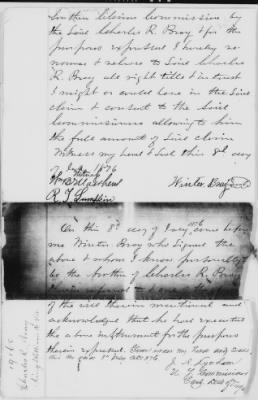 Southern Claims Commission by
the Said Charles R. Bray & for the
purposes expressed I hereby re-
nounce & release to Said Charles
R. Bray all right title & interest
I might or could have in the Said
claim & consent to the Said
Commissioners allowing to him
the full amount of Said claim
Witness my hand & Seal this 8th day
1876
Witness
Winter Bray
R. T. Lumpkin
On this 8th day of 1876 before
me Winter Bray who signed the
above & whom I know personally to
be the brother of Charles R. Bray
of the will therein mentioned and
acknowledge that he has executed
the above instrument for the purposes
therein expressed. Given under my hand
this 8th
J. R.
U. S. Commissioner
East. Dist. of Va
19566
Charles R. Bray